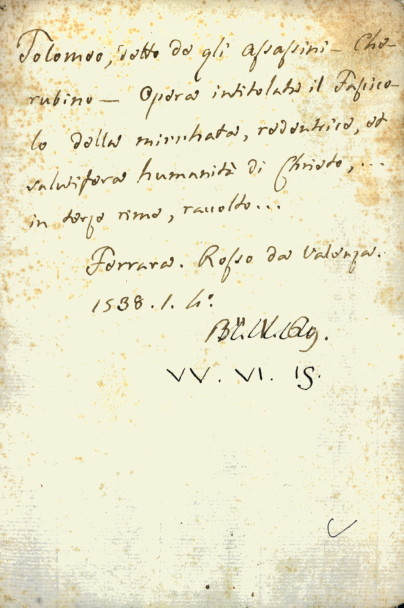 Tolomeo, detto da gli Assassini – Che-
rubino – Opera intitolata il Fascico-
lo della mirrhata, redentrice, et
salutifera humanità di Christo, ...
in terza rima, raccolto...
Ferrara. Rosso da Valenza.
1538. 1. 4°.
VV. VI. 19.